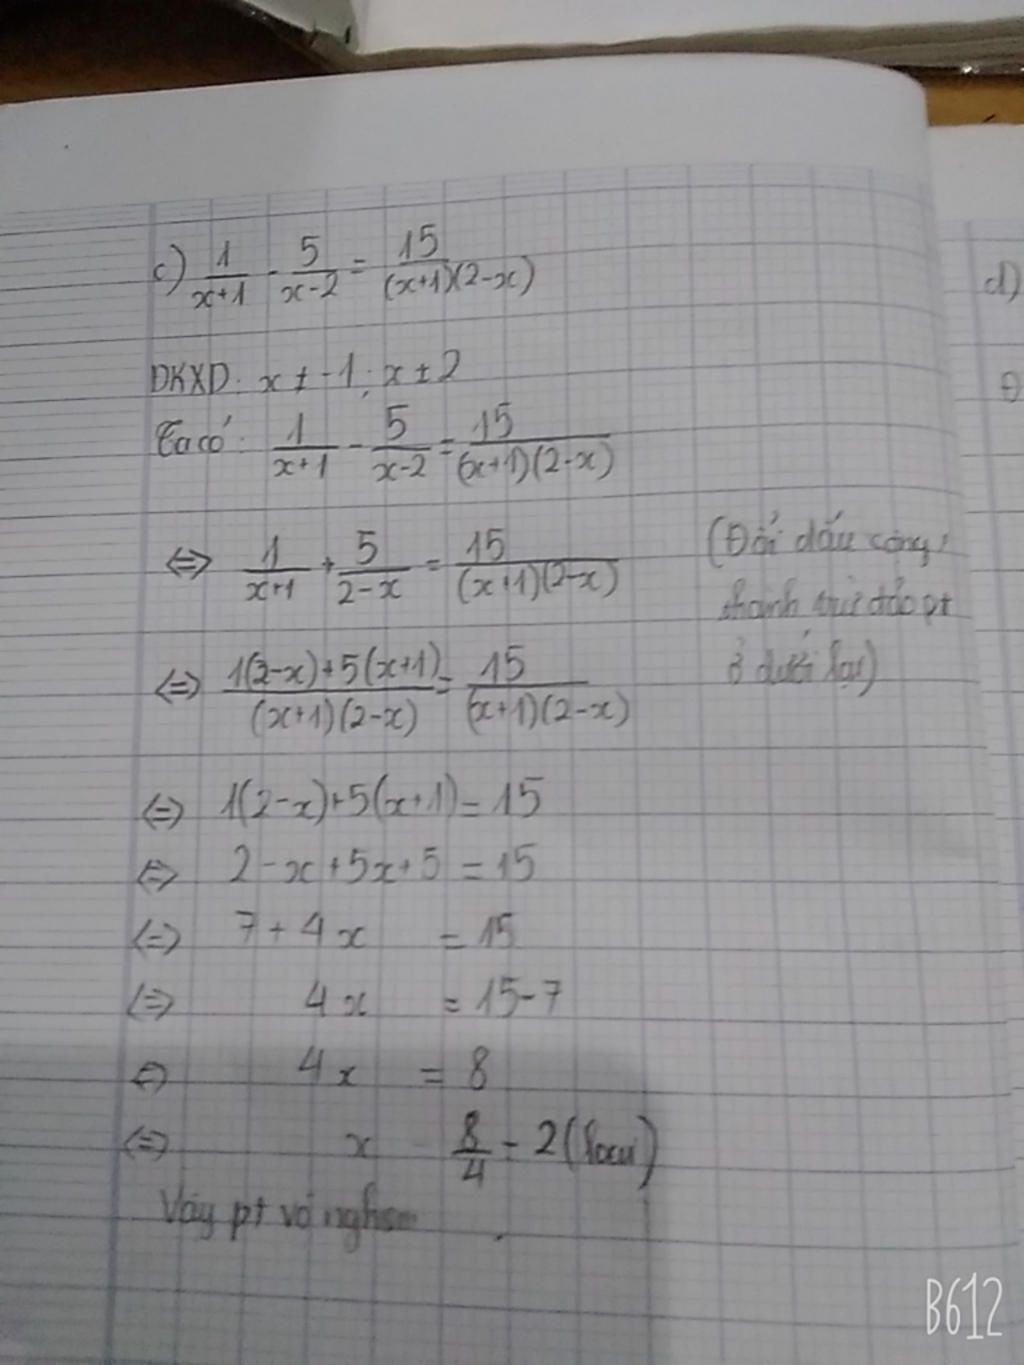 c) 1/(x+1) - 5/(x-2) = 15/((x+1)(2-x))
d)
ĐKXĐ: x ≠ -1; x ≠ 2
Đ
Ta có: 1/(x+1) - 5/(x-2) = 15/((x+1)(2-x))
⇔ 1/(x+1) + 5/(2-x) = 15/((x+1)(2-x)) (Đổi dấu cộng
thành trừ đảo pt
ở dưới lại)
⇔ (1(2-x)+5(x+1))/((x+1)(2-x)) = 15/((x+1)(2-x))
⇔ 1(2-x)+5(x+1) = 15
⇔ 2-x+5x+5 = 15
⇔ 7+4x = 15
⇔ 4x = 15-7
⇔ 4x = 8
⇔ x = 8/4 = 2 (loại)
Vậy pt vô nghiệm
B612